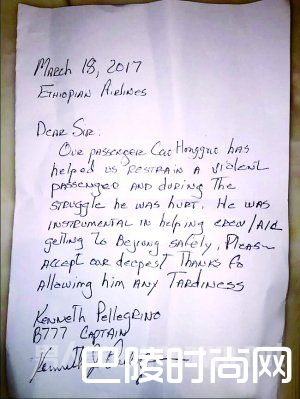 March 18, 2017
Ethiopian Airlines
Dear Sir.
Our passenger Cao Hongguo has
helped us restrain a violent
passenger and during the
struggle he was hurt. He was
instrumental in helping crew/Aid
getting to Beijing safely, Please
accept our deepest thanks fo
allowing him any Tardiness
Kenneth Pellegrino
B777 Captain
巴陵时尚网